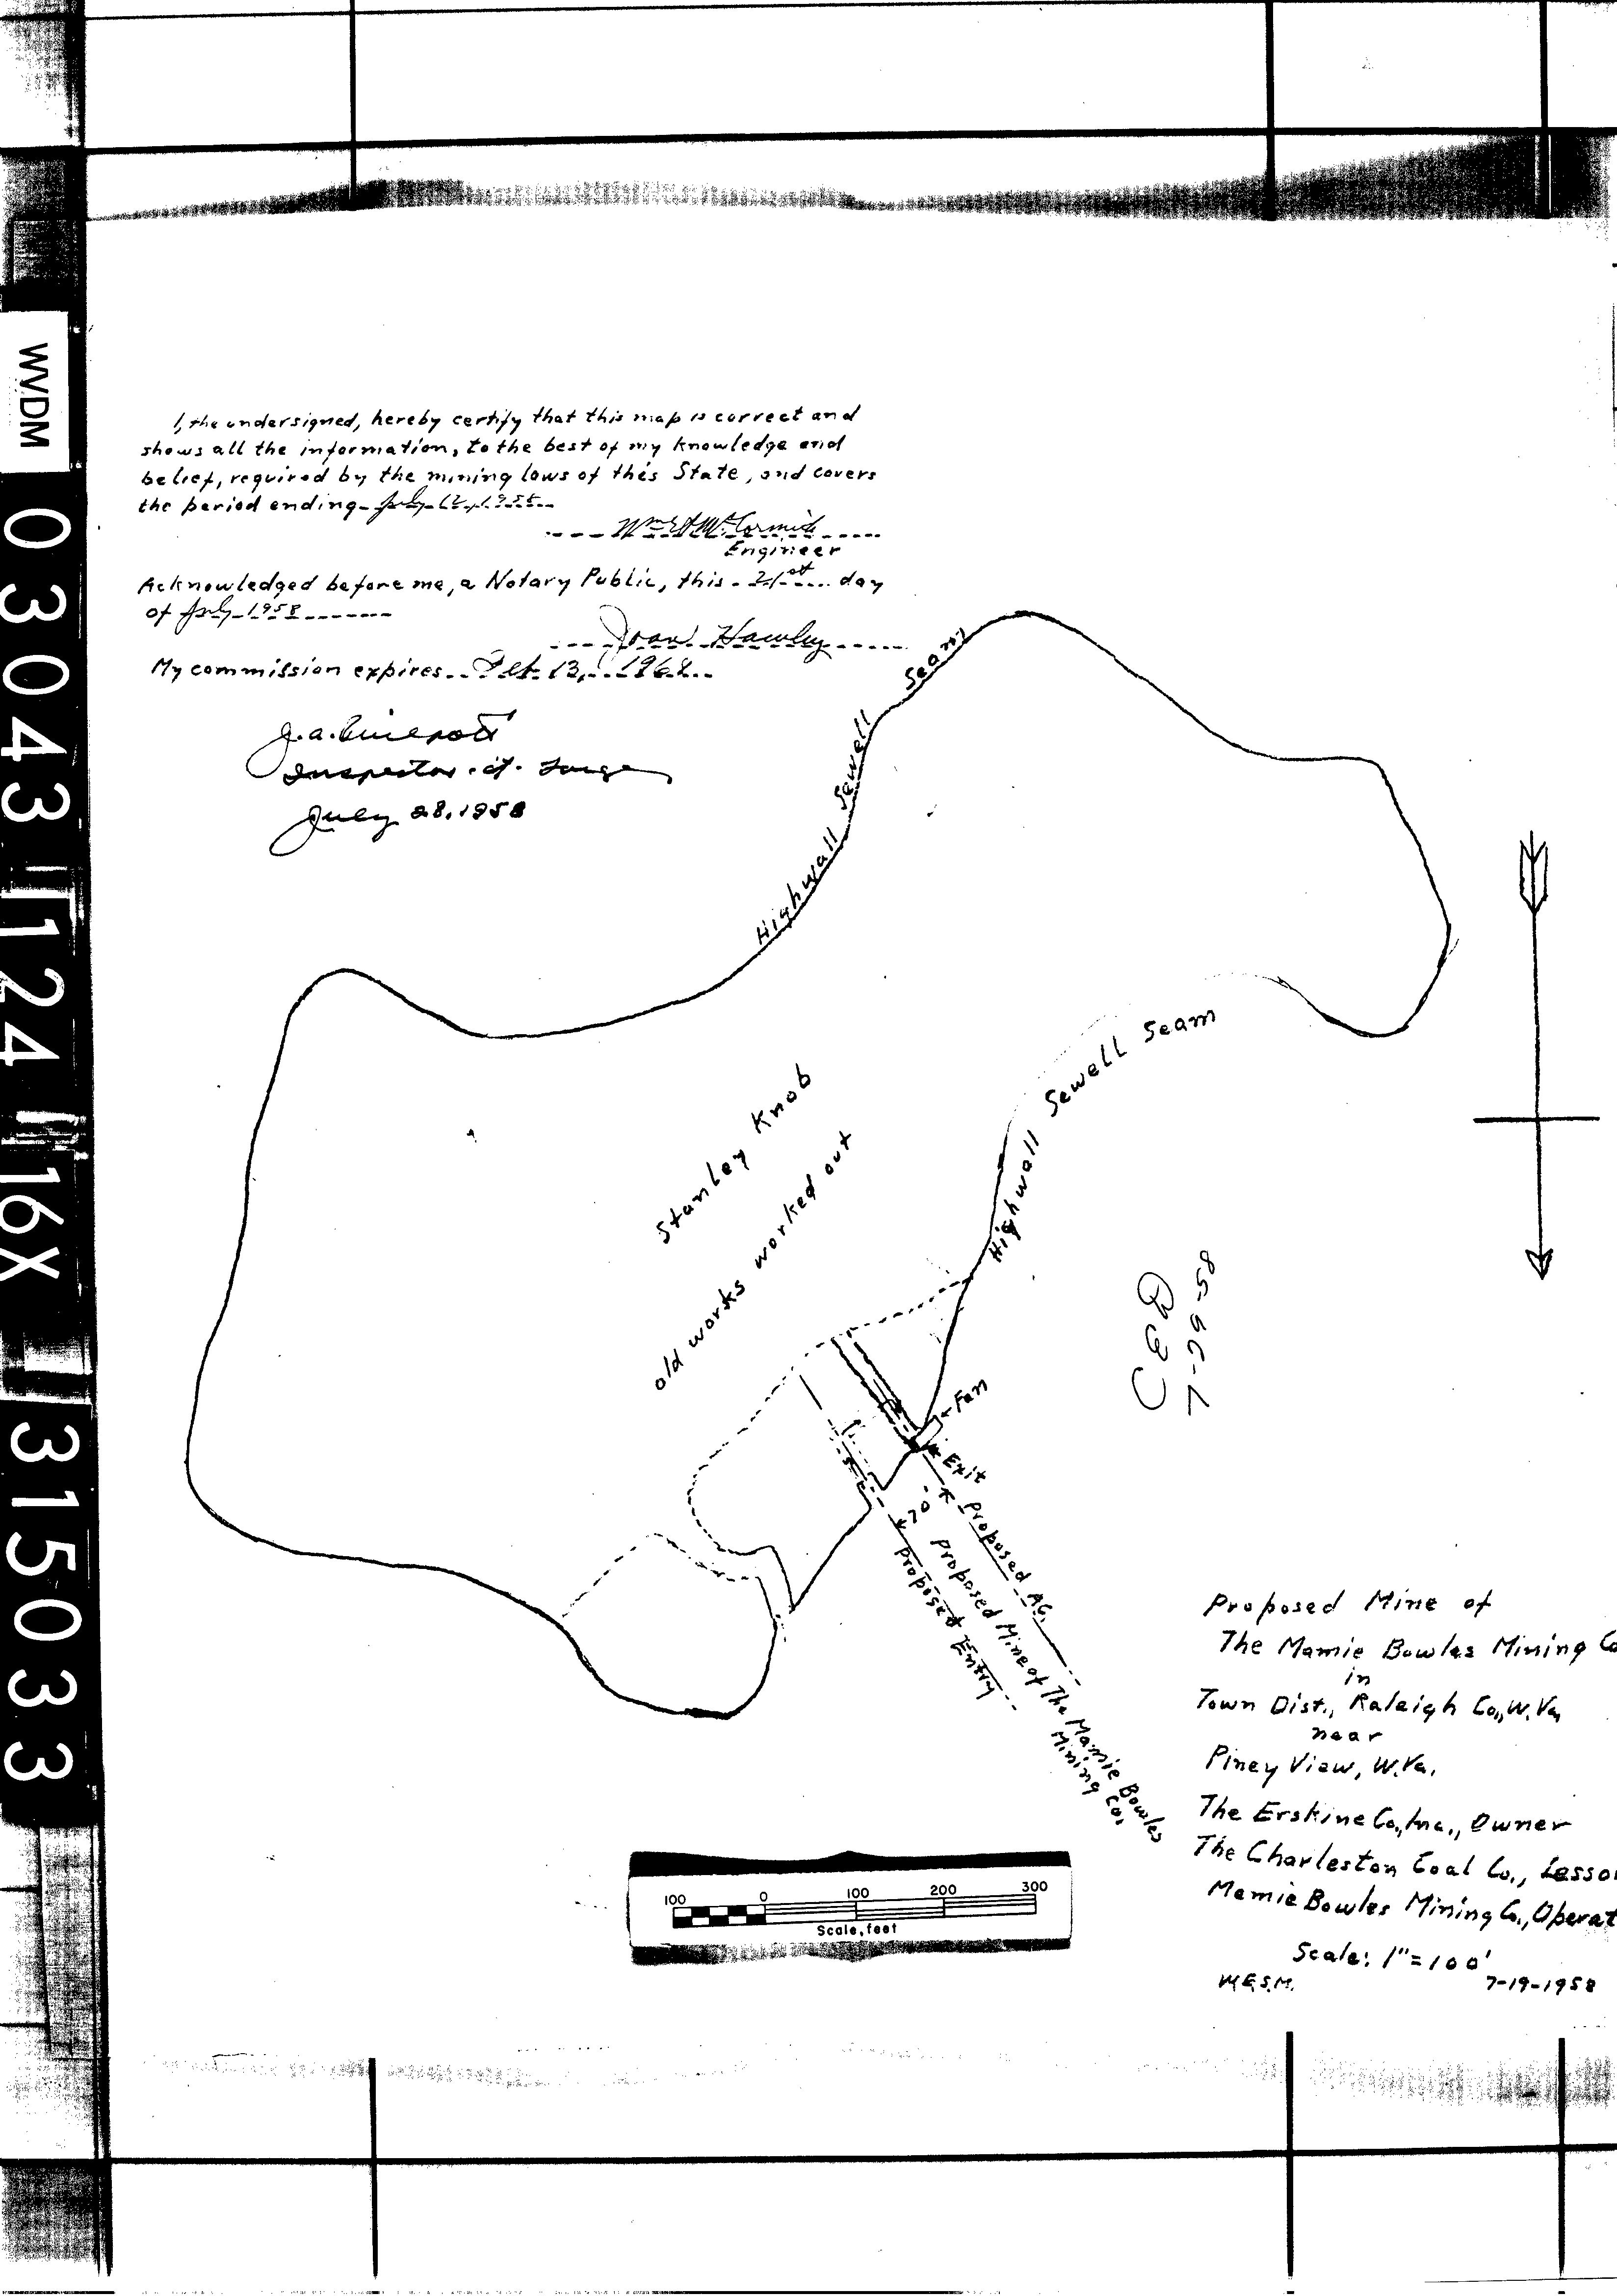 WVDM
03043 124 16X 315033
I, the undersigned, hereby certify that this map is correct and
shows all the information, to the best of my knowledge and
belief, required by the mining laws of this State, and covers
the period ending July
Wm E McCormick
Engineer
Acknowledged before me, a Notary Public, this 21st day
of July 1958
Joan Hawley
My commission expires 13, 196
J.A.
Inspector at Large
July 28, 1958
Highwall Sewell Seam
Highwall Sewell Seam
Stanley Knob
old works worked out
CBB
7-29-58
Fan
Exit
70'
Proposed AC.
Proposed Mine of The Mamie Bowles
Mining Co.
Proposed Entry
Proposed Mine of
The Mamie Bowles Mining Co
in
Town Dist., Raleigh Co., W. Va,
near
Piney View, W. Va.
The Erskine Co., Inc., Owner
The Charleston Coal Co., Lesso
Mamie Bowles Mining Co., Operat
Scale: 1"=100'
W.E.S.M.
7-19-1958
100 0 100 200 300
Scale, feet